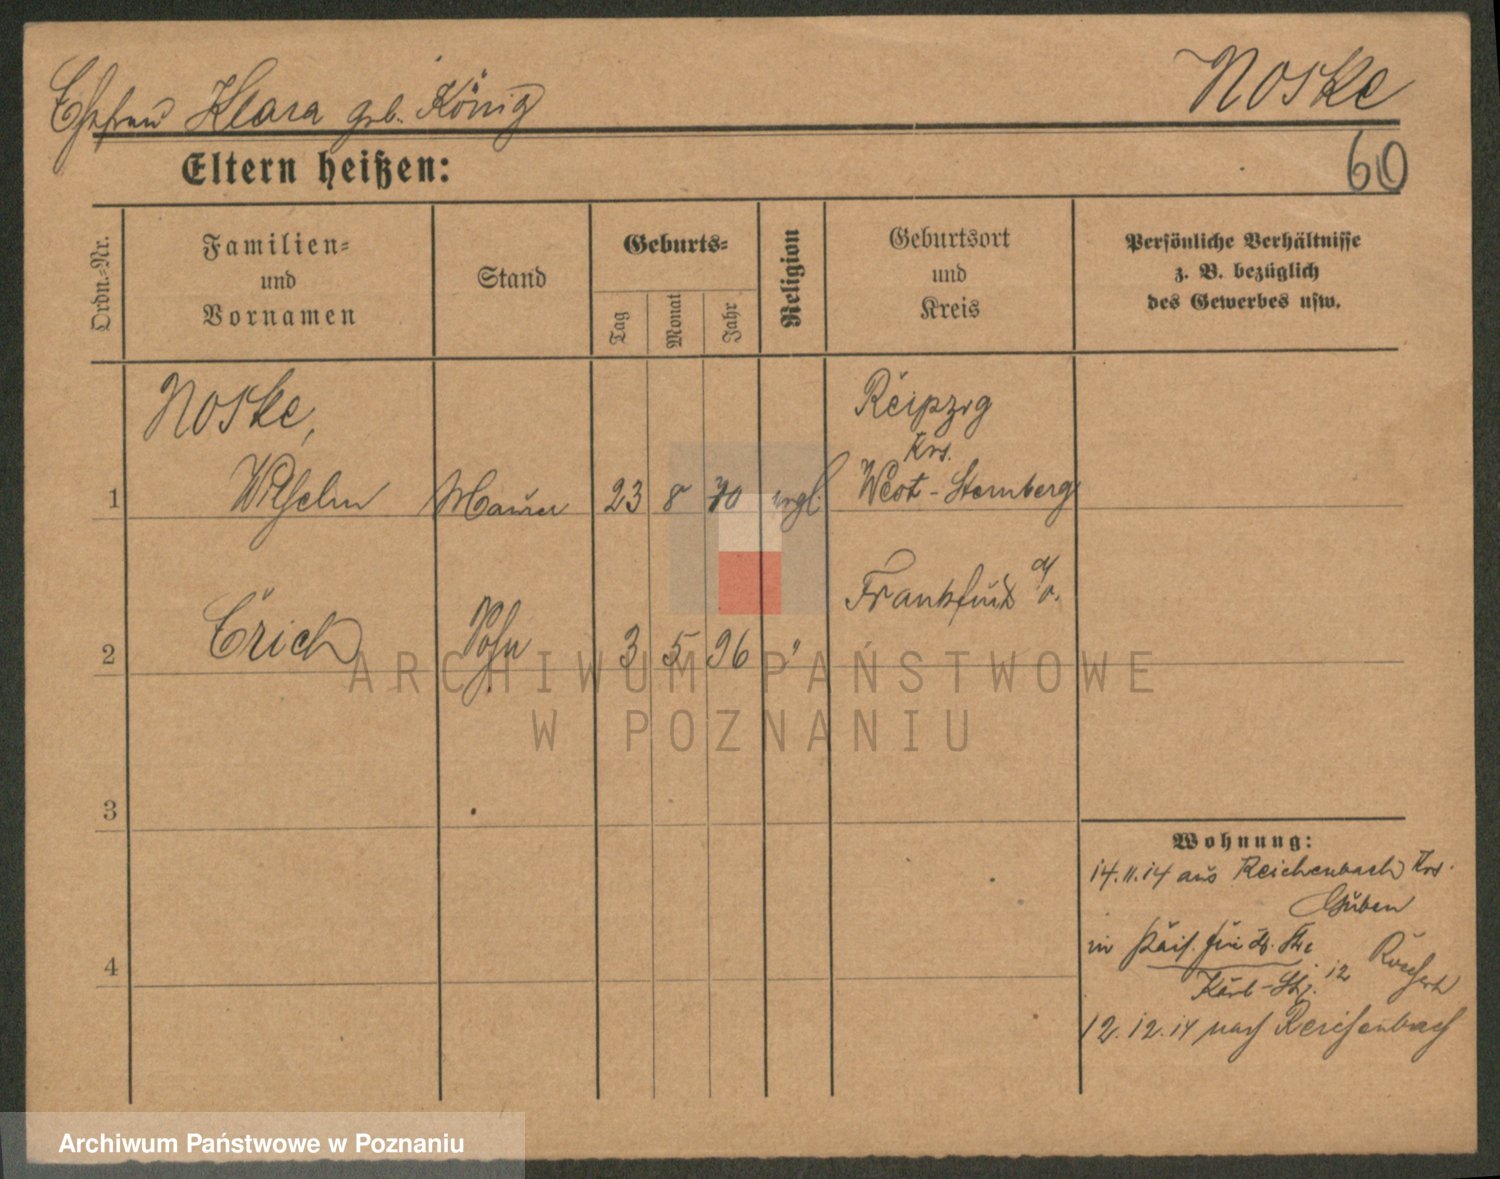 Ehefrau Klara geb. König
Noske
60
Eltern heißen:
Ordn.=Nr.
Familien=
und
Vornamen
Stand
Geburts=
Tag
Monat
Jahr
Religion
Geburtsort
und
Kreis
Persönliche Verhältnisse
z. B. bezüglich
des Gewerbes usw.
Noske,
Reipzig
Krs.
1 Wilhelm Maurer 23 8 70 evgl. West-Sternberg
Frankfurt a/o.
2 Erich Sohn 3 5 96 "
3
4
Wohnung:
14.11.14 aus Reichenbach Krs.
Guben
in
12
12.12.14 nach Reichenbach
ARCHIWUM PAŃSTWOWE
W POZNANIU
Archiwum Państwowe w Poznaniu